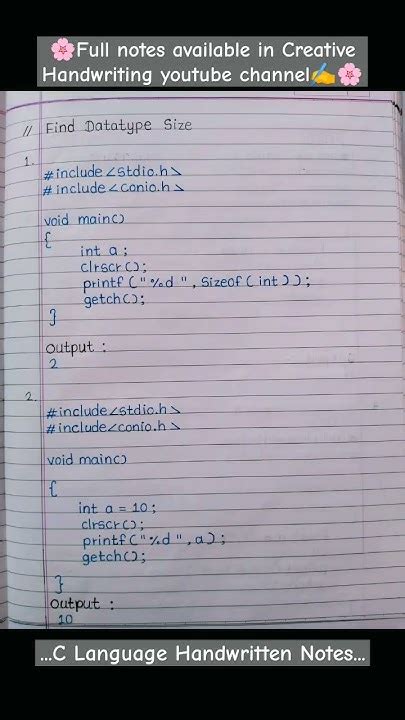 🌸Full notes available in Creative
Handwriting youtube channel✍️🌸
// Find Datatype Size
1.
#include<stdio.h>
#include<conio.h>
void main()
{
int a ;
clrscr();
printf("%d ", Sizeof(int));
getch();
}
output :
2
2.
#include<stdio.h>
#include<conio.h>
void main()
{
int a = 10 ;
clrscr();
printf("%d ", a);
getch();
}
output :
10
...C Language Handwritten Notes...